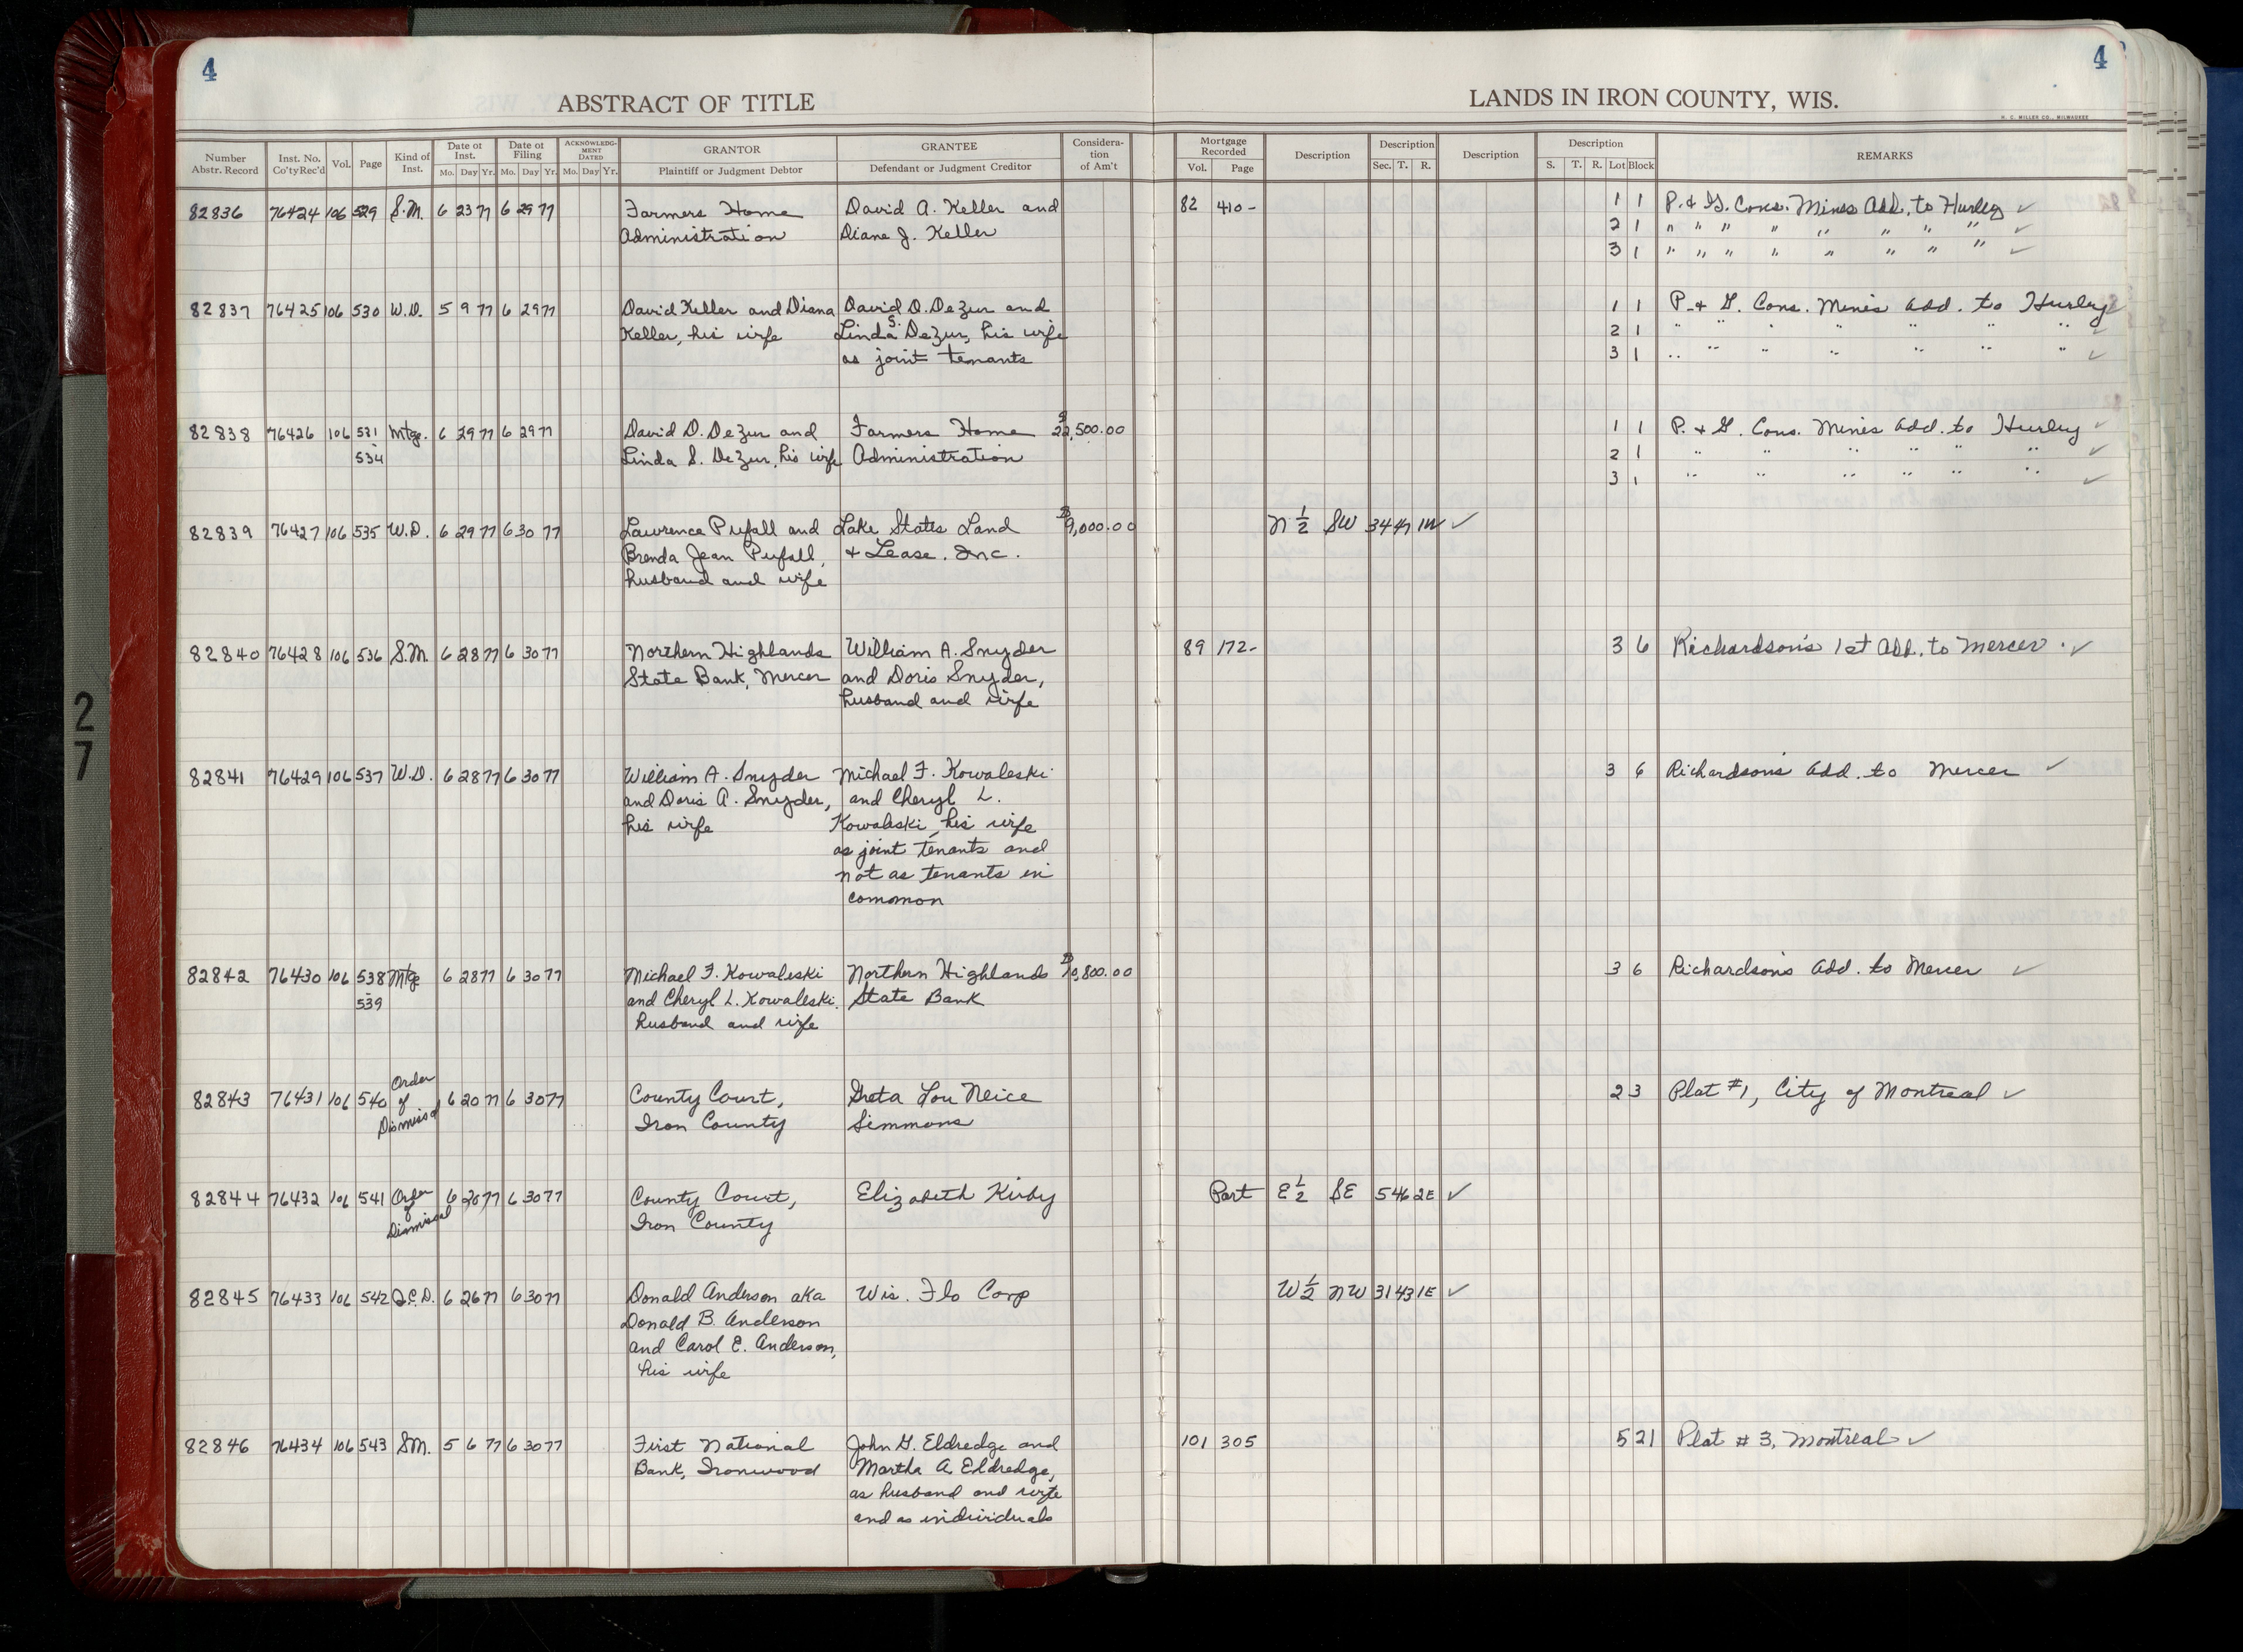 4
4
ABSTRACT OF TITLE
LANDS IN IRON COUNTY, WIS.
H. C. MILLER CO., MILWAUKEE
Number Abstr. Record Inst. No. Co'ty Rec'd Vol. Page Kind of Inst. Date of Inst. Mo. Day Yr. Date of Filing Mo. Day Yr. ACKNOWLEDGMENT DATED Mo. Day Yr. GRANTOR Plaintiff or Judgment Debtor GRANTEE Defendant or Judgment Creditor Consideration of Am't Mortgage Recorded Vol. Page Description Description Sec. T. R. Description Description S. T. R. Lot Block REMARKS
82836 76424 106 529 S.M. 6 23 77 6 29 77 Farmers Home David A. Keller and 82 410- 1 1 P. & G. Cons. Mines Add. to Hurley ✓
Administration Diane J. Keller 2 1 " " " " " " " " ✓
3 1 " " " " " " " " ✓
82837 76425 106 530 W.D. 5 9 77 6 29 77 David Keller and Diana David D. DeZur and 1 1 P. & G. Cons. Mines Add. to Hurley
Keller, his wife Linda S. DeZur, his wife 2 1 " " " " " " " ✓
as joint tenants 3 1 " " " " " " " ✓
82838 76426 106 531 Mtge. 6 29 77 6 29 77 David D. DeZur and Farmers Home $22,500.00 1 1 P. & G. Cons. Mines Add. to Hurley ✓
- 534 Linda S. DeZur, his wife Administration 2 1 " " " " " " ✓
3 1 " " " " " " ✓
82839 76427 106 535 W.D. 6 29 77 6 30 77 Lawrence Pufall and Lake States Land $9,000.00 N 1/2 SW 34 47 1W ✓
Brenda Jean Pufall, & Lease. Inc.
husband and wife
82840 76428 106 536 S.M. 6 28 77 6 30 77 Northern Highlands William A. Snyder 89 172- 3 6 Richardson's 1st Add. to Mercer ✓
State Bank, Mercer and Doris Snyder,
husband and wife
82841 76429 106 537 W.D. 6 28 77 6 30 77 William A. Snyder Michael F. Kowaleski 3 6 Richardson's Add. to Mercer ✓
and Doris A. Snyder, and Cheryl L.
his wife Kowaleski, his wife
as joint tenants and
not as tenants in
common
82842 76430 106 538 Mtge 6 28 77 6 30 77 Michael F. Kowaleski Northern Highlands $10,800.00 3 6 Richardson's Add. to Mercer ✓
- 539 and Cheryl L. Kowaleski State Bank
husband and wife
82843 76431 106 540 Order of Dismissal 6 20 77 6 30 77 County Court, Greta Lou Neice 2 3 Plat #1, City of Montreal ✓
Iron County Simmons
82844 76432 106 541 Order of Dismissal 6 20 77 6 30 77 County Court, Elizabeth Kirby Part E 1/2 SE 5 46 2E ✓
Iron County
82845 76433 106 542 Q.C.D. 6 26 77 6 30 77 Donald Anderson aka Wis. Flo Corp W 1/2 NW 31 43 1E ✓
Donald B. Anderson
and Carol E. Anderson,
his wife
82846 76434 106 543 S.M. 5 6 77 6 30 77 First National John G. Eldredge and 101 305 5 21 Plat # 3, Montreal ✓
Bank, Ironwood Martha A. Eldredge,
as husband and wife
and as individuals
27